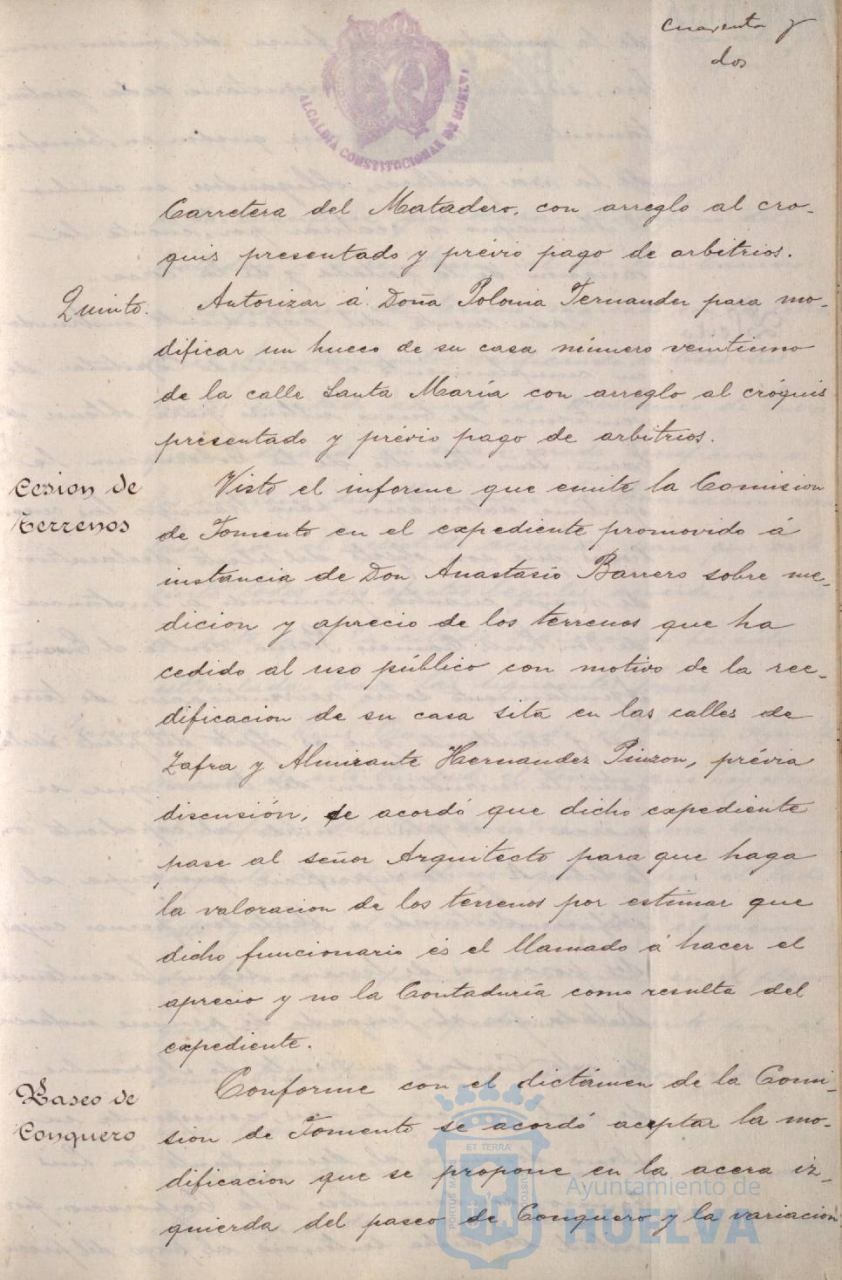 cuarenta y
dos
ALCALDÍA CONSTITUCIONAL DE HUELVA
Carretera del Matadero, con arreglo al cro-
quis presentado y prévio pago de arbitrios.
Quinto. Autorizar á Doña Polonia Fernandez para mo-
dificar un hueco de su casa número veintiuno
de la calle Santa María con arreglo al cróquis
presentado y prévio pago de arbitrios.
Cesion de
Terrenos
Visto el informe que emite la Comision
de Fomento en el expediente promovido á
instancia de Don Anastasio Barrero sobre me-
dicion y aprecio de los terrenos que ha
cedido al uso público con motivo de la ree-
dificacion de su casa sita en las calles de
Zafra y Almirante Hernandez Pinzon, prévia
discusión, se acordó que dicho expediente
pase al señor Arquitecto para que haga
la valoracion de los terrenos por estimar que
dicho funcionario és el llamado á hacer el
aprecio y no la Contaduría como resulta del
expediente.
Paseo de
Conquero
Conforme con el dictámen de la Comi-
sion de Fomento se acordó aceptar la mo-
dificacion que se propone en la acera iz-
quierda del paseo de Conquero y la variacion
ET TERRA
PORTUS MARIS
CUSTODIA
Ayuntamiento de
HUELVA